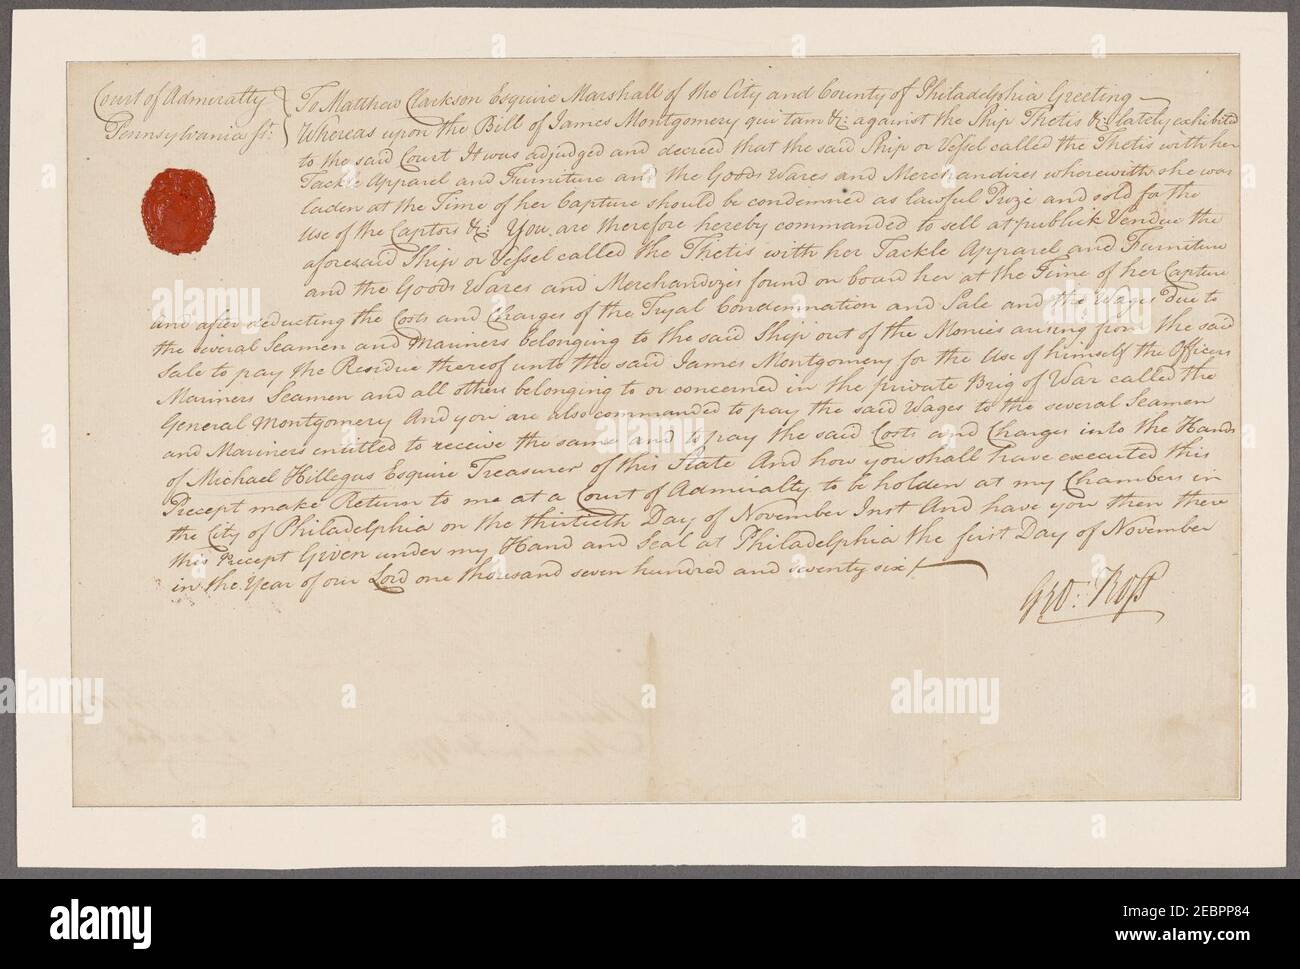 Court of Admiralty
Pennsylvania ss:
To Matthew Clarkson Esquire Marshall of the City and County of Philadelphia Greeting
Whereas upon the Bill of James Montgomery qui tam &c: against the Ship Thetis &c: lately exhibited
to the said Court It was adjudged and decreed that the said Ship or Vessel called the Thetis with her
Tackle Apparel and Furniture and the Goods Wares and Merchandizes wherewith she was
laden at the Time of her Capture should be condemned as lawful Prize and sold for the
Use of the Captors &c: You are therefore hereby commanded to sell at publick Vendue the
aforesaid Ship or Vessel called the Thetis with her Tackle Apparel and Furniture
and the Goods Wares and Merchandizes found on board her at the Time of her Capture
and after deducting the Costs and Charges of the Tryal Condemnation and Sale and the Wages due to
the several Seamen and Mariners belonging to the said Ship out of the Monies arising from the said
Sale to pay the Residue thereof unto the said James Montgomery for the Use of himself the Officers
Mariners Seamen and all others belonging to or concerned in the private Brig of War called the
General Montgomery And you are also commanded to pay the said Wages to the several Seamen
and Mariners entitled to receive the same and to pay the said Costs and Charges into the Hands
of Michael Hillegas Esquire Treasurer of this State And how you shall have executed this
Precept make Return to me at a Court of Admiralty to be holden at my Chambers in
the City of Philadelphia on the thirtieth Day of November Inst And have you then there
this Precept Given under my Hand and Seal at Philadelphia the first Day of November
in the Year of our Lord one thousand seven hundred and seventy six
Geo: Ross
alamy
Image ID: 2EBPP84
www.alamy.com